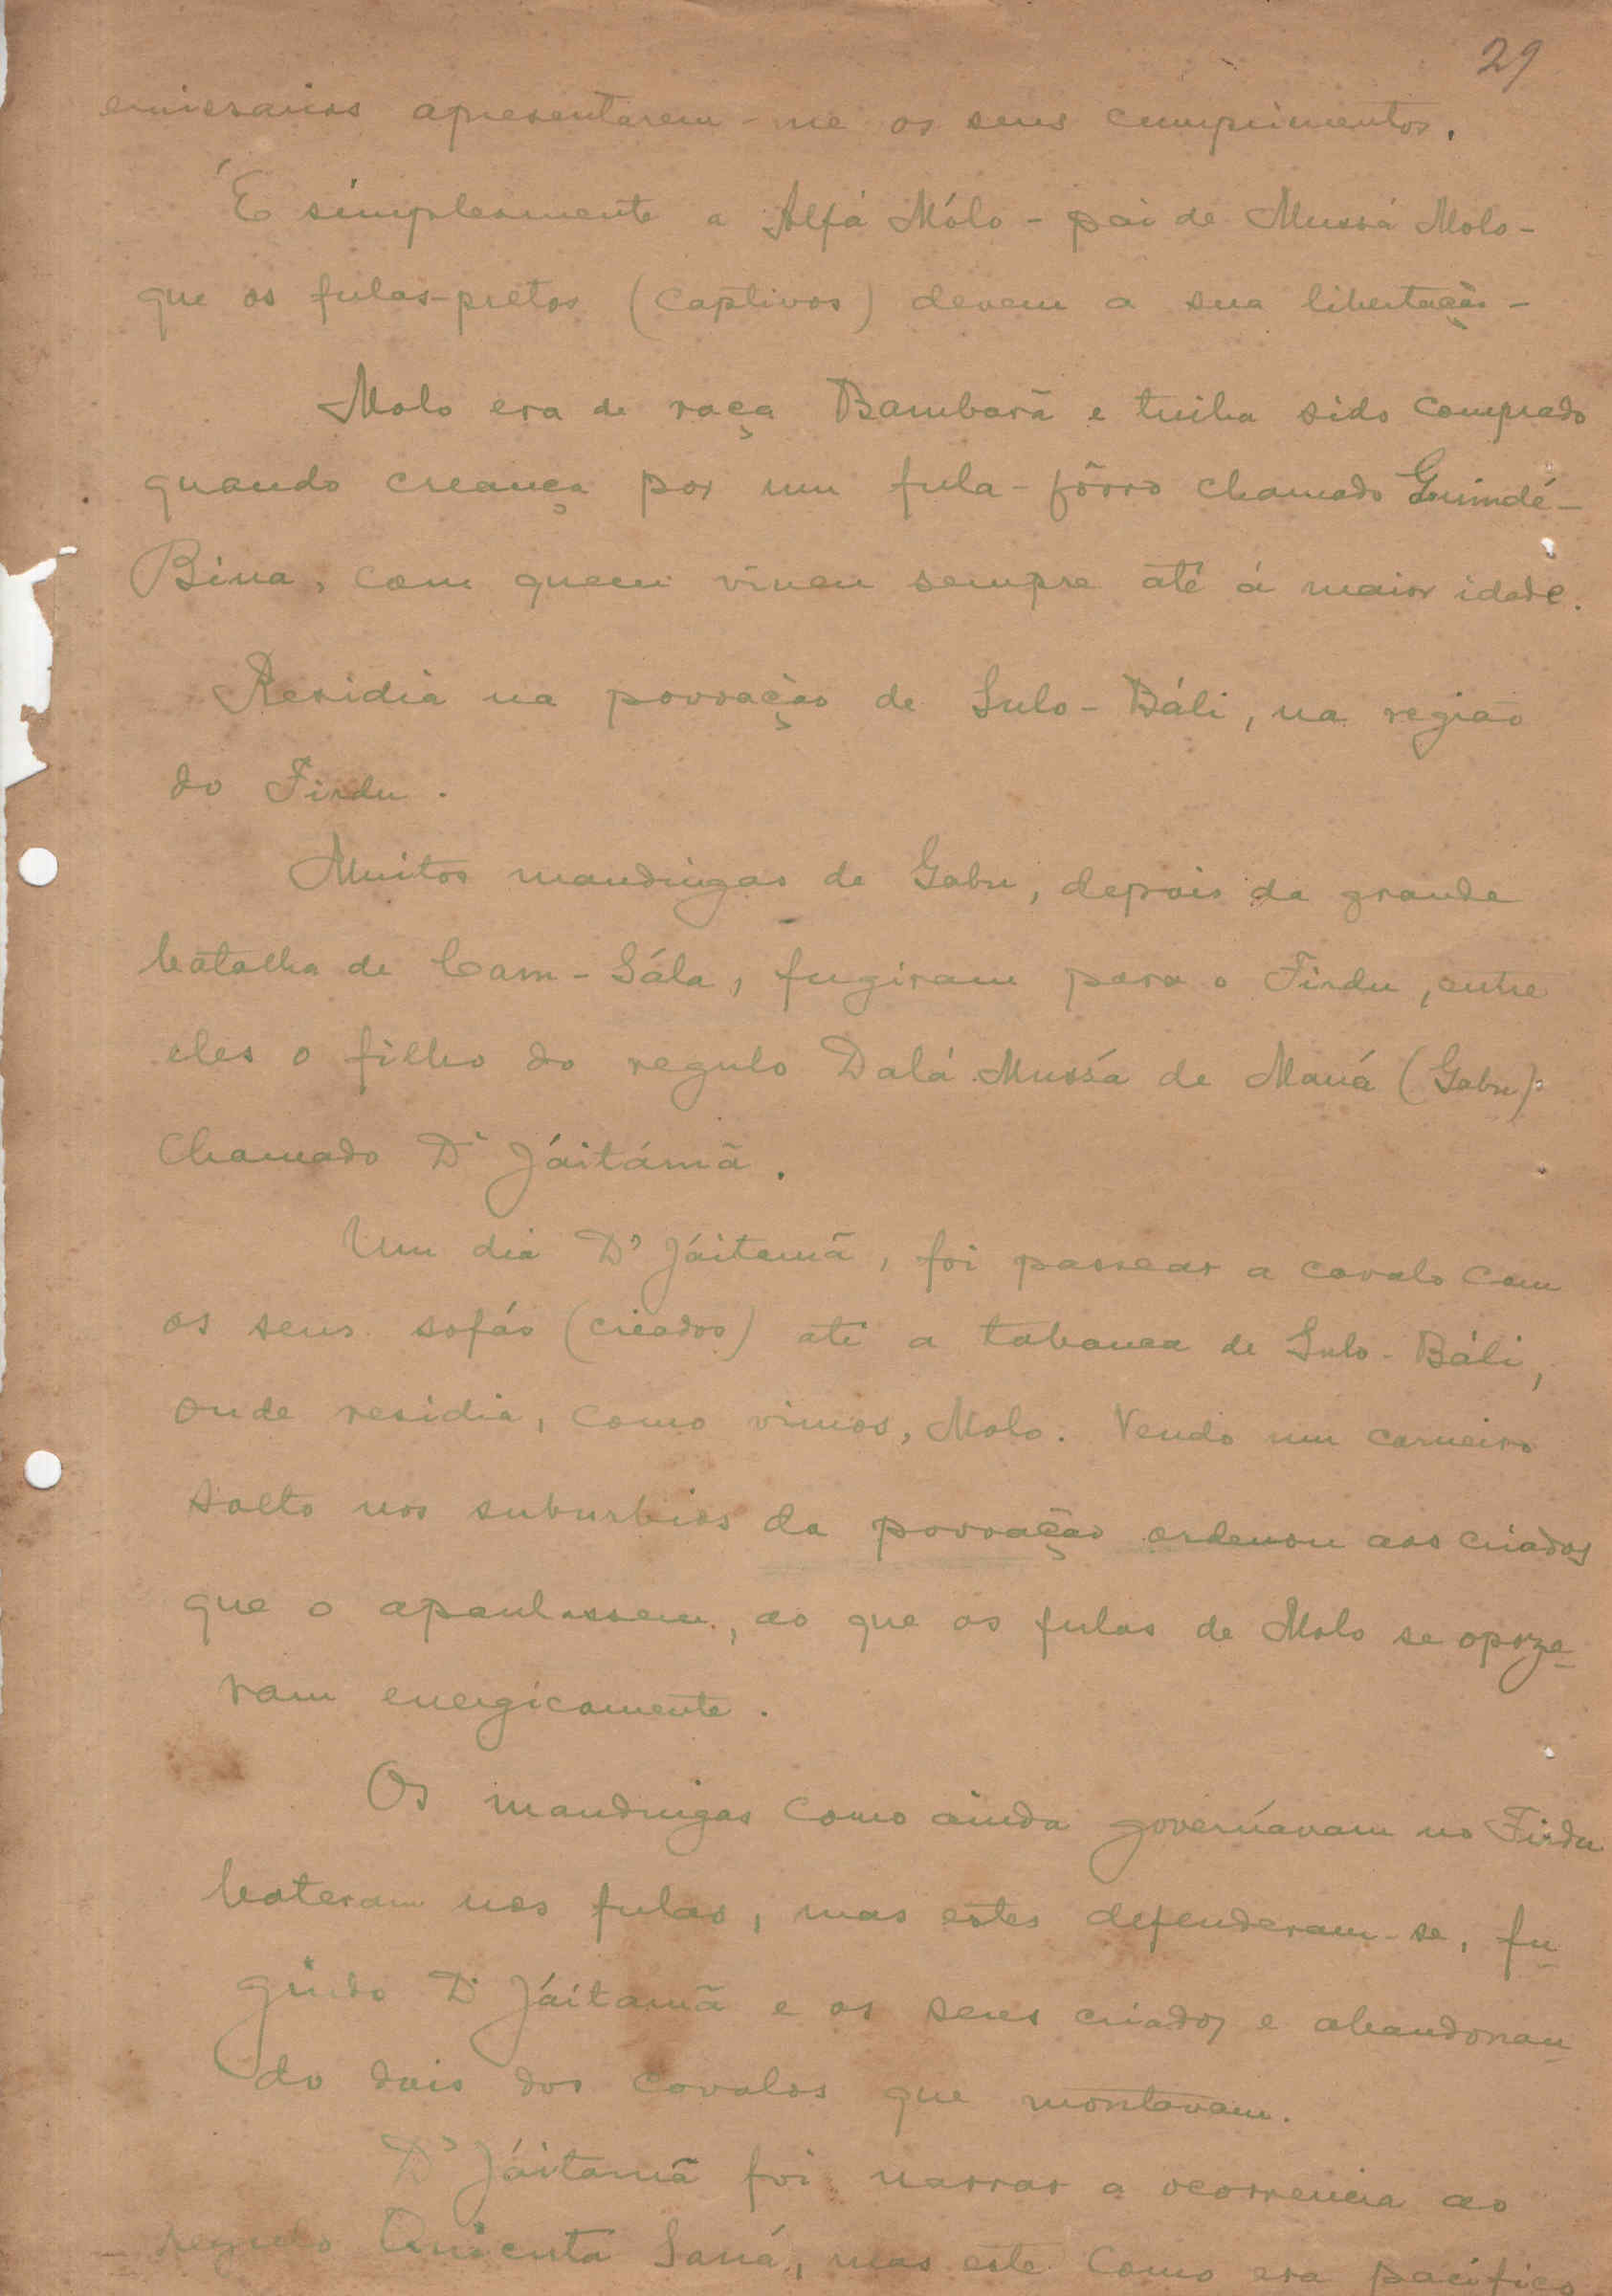 29
emissarios apresentarem-me os seus cumprimentos.
É simplesmente a Alfá Mólo - pai de Mussá Molo -
que os fulas-pretos (captivos) devem a sua libertação -
Molo era de raça Bambarã e tinha sido comprado
quando creança por um fula-fôrro chamado Guimdé-
Bina, com quem viveu sempre até á maior idade.
Residia na povoação de Sulo-Báli, na região
do Firdu.
Muitos mandingas de Gabu, depois da grande
batalha de Cam-Sála, fugiram para o Firdu, entre
eles o filho do regulo Dalá Mussá de Maná (Gabu)
chamado D'Jáitámã.
Um dia D'Jáitamã, foi passear a cavalo com
os seus sofás (creados) até a tabanca de Sulo-Báli,
onde residia, como vimos, Molo. Vendo um carneiro
solto nos suburbios da povoação ordenou aos criados
que o apanhassem, ao que os fulas de Molo se opoze-
ram energicamente.
Os mandingas como ainda governávam no Firdu
bateram nos fulas, mas estes defenderam-se, fu-
gindo D'Jáitamã e os seus criados e abandonan-
do dois dos cavalos que montavam.
D'Jáitamã foi narrar a ocorrencia ao
regulo Saná, mas este como era pacifico